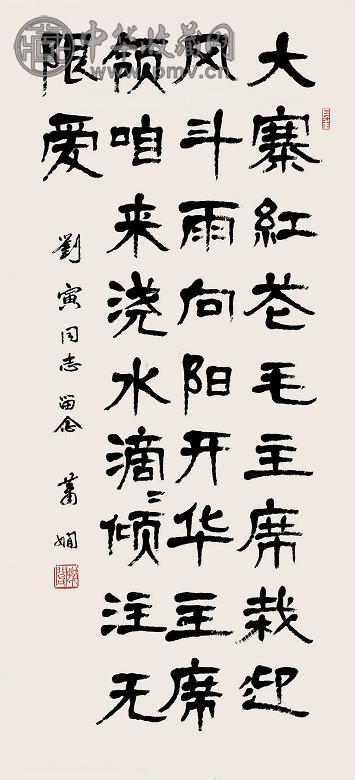 大寨紅花毛主席栽迎
风斗雨向阳开华主席
领咱来浇水滴〻倾注无
限爱
劉寅同志留念 萧娴
中华收藏网